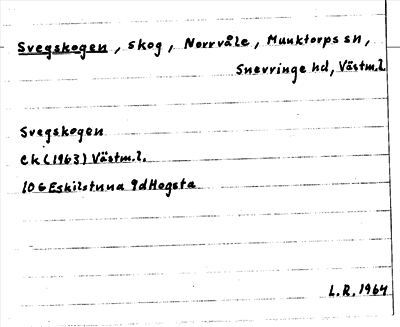 Svegskogen, skog, Norrvåle, Munktorps sn,
Snevringe hd, Västm.l.
Svegskogen
Ek (1963) Västm.l.
10G Eskilstuna 9d Hogsta
L.R. 1964